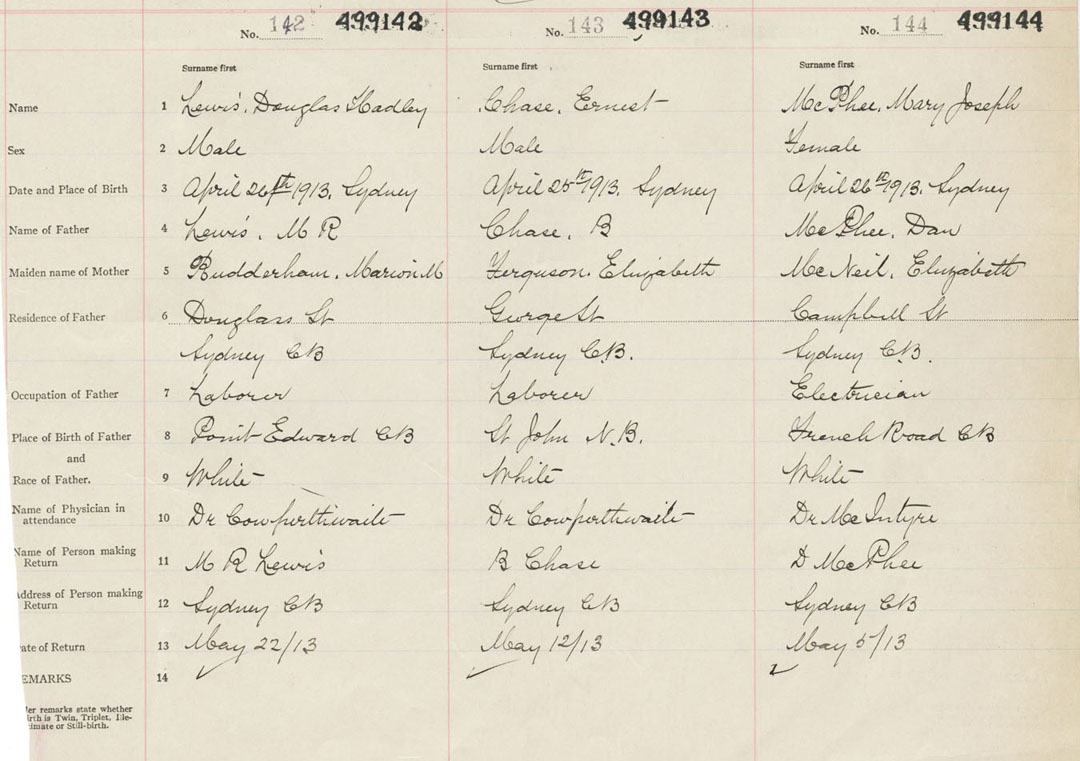 No. 142 499142 No. 143 499143 No. 144 499144
Surname first Surname first Surname first
Name 1 Lewis, Douglas Hadley Chase, Ernest McPhee, Mary Joseph
Sex 2 Male Male Female
Date and Place of Birth 3 April 26th 1913, Sydney April 25th 1913, Sydney April 26th 1913, Sydney
Name of Father 4 Lewis, M R Chase, B McPhee, Dan
Maiden name of Mother 5 Rudderham, Marion M Ferguson, Elizabeth McNeil, Elizabeth
Residence of Father 6 Douglass St George St Campbell St
Sydney CB Sydney C.B. Sydney C.B.
Occupation of Father 7 Laborer Laborer Electrician
Place of Birth of Father 8 Point Edward CB St John N.B. French Road CB
and
Race of Father. 9 White White White
Name of Physician in
attendance 10 Dr Cowperthwaite Dr Cowperthwaite Dr McIntyre
Name of Person making
Return 11 M R Lewis B Chase D McPhee
ddress of Person making
Return 12 Sydney CB Sydney CB Sydney CB
ate of Return 13 May 22/13 May 12/13 May 5/13
EMARKS 14
der remarks state whether
irth is Twin, Triplet, Ille-
imate or Still-birth.